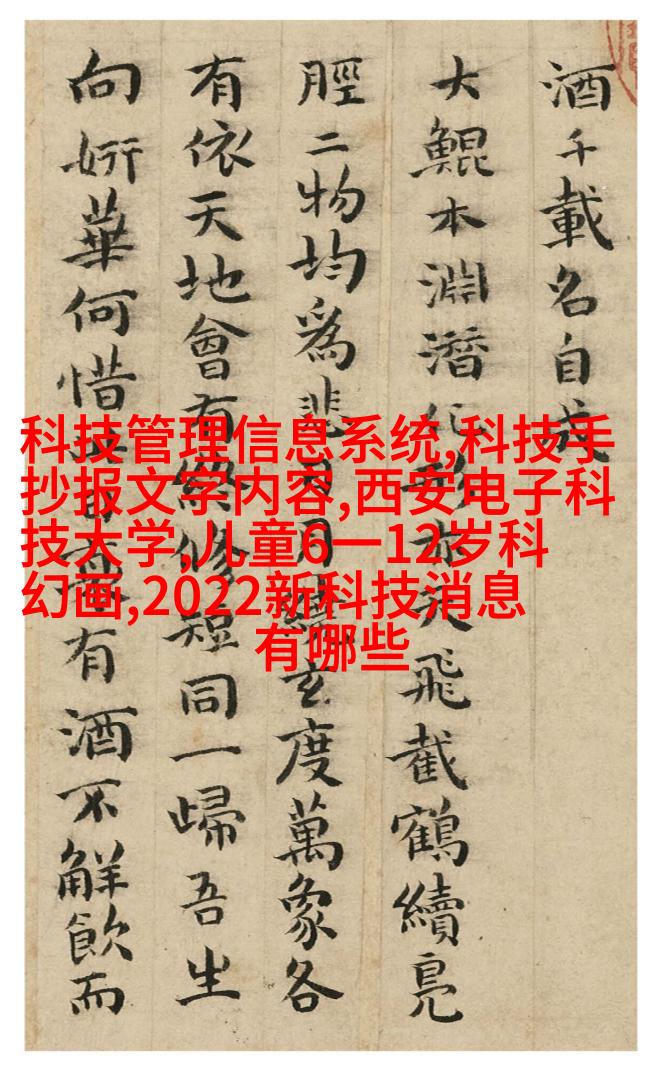 酒千載名自成
大鯤本淵潛化天飛截鶴續鳧
脛二物均為悲日月玄度萬象各
有依天地會有終修短同一歸吾生
向妍華何惜有酒不解飲而
科技管理信息系统,科技手
抄报文字内容,西安电子科
技大学,儿童6一12岁科
幻画,2022新科技消息
有哪些